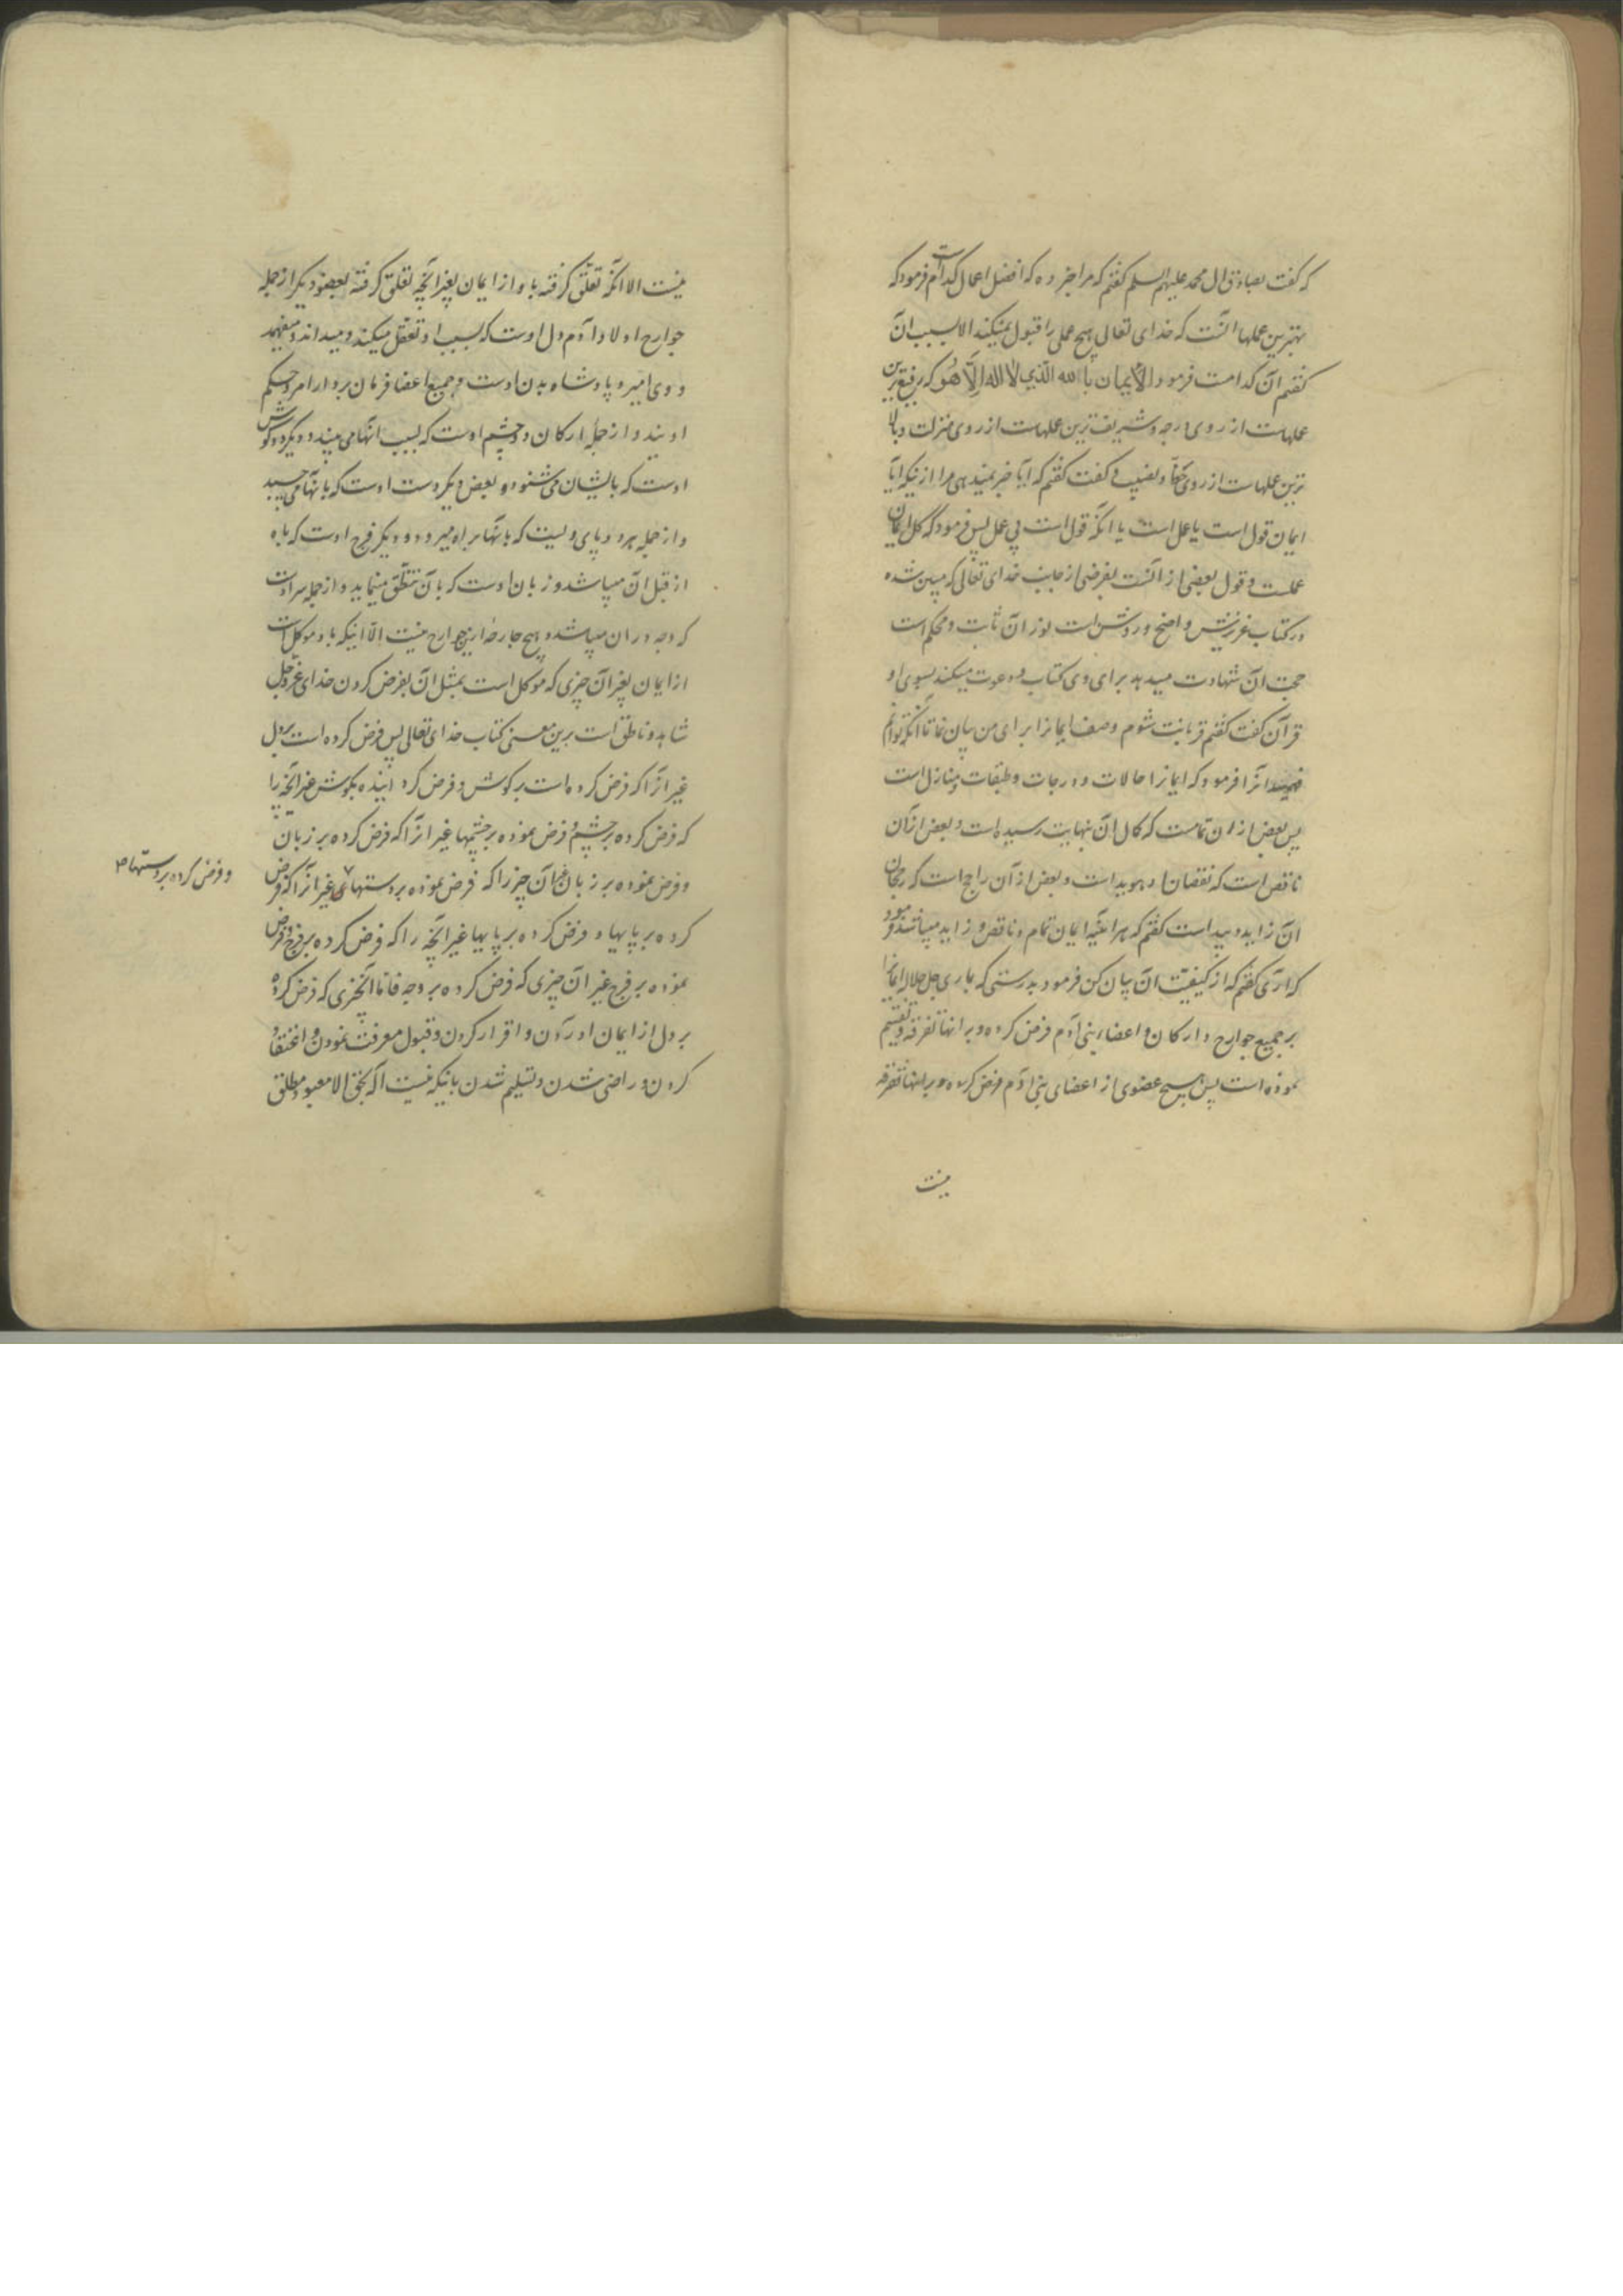 که گفت بصادق ال محمد علیهم السلم گفتم که مرا خبر ده که افضل اعمال کدام است فرمود که
بهترین عملها آنست که خدای تعالی هیچ عملی را قبول نمیکند الا بسبب آن
گفتم آن کدامست فرمود الأیمان بالله الّذی لا اله اِلّا هُوَ که رفیع ترین
عملهاست از روی درجه و شریف ترین عملهاست از روی منزلت و بالا
ترین عملهاست از روی حظّ و نصیب گفت گفتم که ایا خبر نمیدهی مرا از اینکه ایا
ایمان قول است یا عمل است یا انکه قول است بی عمل پس فرمود که کل ایمان
عملست و قول بعضی از آنست بفرضی از جانب خدای تعالی که مبین شده
در کتاب عزیزش واضح و روشن است نور آن ثابت و محکم است
حجت آن شهادت میدهد برای وی کتاب و دعوت میکند بسوی او
قرآن گفت گفتم قربانت شوم وصف ایمانرا برای من بیان نما تا آنکه توانم
فهمید آنرا فرمود که ایمانرا حالات و درجات و طبقات و منازل است
پس بعض از ان تمامست که کمال آن بنهایت رسیده است و بعض از آن
ناقص است که نقصان او هویداست و بعض از آن راجح است که رجحان
آن زاید و پیداست گفتم که هر اینه ایمان تمام و ناقص و زاید میباشد فرمود
که آری گفتم که از کیفیت آن بیان کن فرمود بدرستی که باری جل جلاله ایمانرا
بر جمیع جوارح و ارکان و اعضاء بنی آدم فرض کرده و بر آنها تفرقه و تقسیم
نموده است پس هیچ عضوی از اعضای بنی آدم فرض کرده و بر آنها تفرقه
نیست
نیست الا آنکه تعلق گرفته باو از ایمان بغیر آنچه تعلق گرفته بعضو دیگر از جمله
جوارح اولاد آدم دل اوست که بسبب او تعقل میکند و میداند و میفهمد
و وی امیر و پادشاه بدن اوست و جمیع اعضا فرمان بردار امر و حکم
اویند و از جمله ارکان دو چشم اوست که بسبب آنها می بیند و دیگر دو گوش
اوست که بایشان می شنود و بعض دیگر دست اوست که بآنها می چسپد
و از جمله هر دو پای ویست که بآنها براه میرود و دیگر فرج اوست که باه
از قبل آن میباشد و زبان اوست که بآن تنطّق مینماید و از جمله سر اوست
که وجه در ان میباشد و هیچ جارحه ازین جوارح نیست الّا اینکه باو موکل است
از ایمان بغیر آن چیزی که موکل است بمثل آن بفرض کردن خدای عزّ و جلّ
شاهد و ناطق است برین معنی کتاب خدای تعالی پس فرض کرده است بر دل
غیر آنرا که فرض کرده است بر گوش و فرض کرد اینده بگوش غیر آنچه را
که فرض کرده بر چشم و فرض نموده بر چشمها غیر آنرا که فرض کرده بر زبان
و فرض نموده بر زبان غیر آن چیز را که فرض نموده بر دستها غیر آنرا که فرض
و فرض کرده بر دستها صح
کرده بر پایها و فرض کرده بر پایها غیر آنچه را که فرض کرده بر فرج و فرض
نموده بر فرج غیر آن چیزی که فرض کرده بر وجه فاما آنچیزی که فرض کرده
بر دل از ایمان اوردن و اقرار کردن و قبول معرفت نمودن و اعتقاد
کردن و راضی شدن و تسلیم شدن باینکه نیست اله بحق الا معبود مطلق